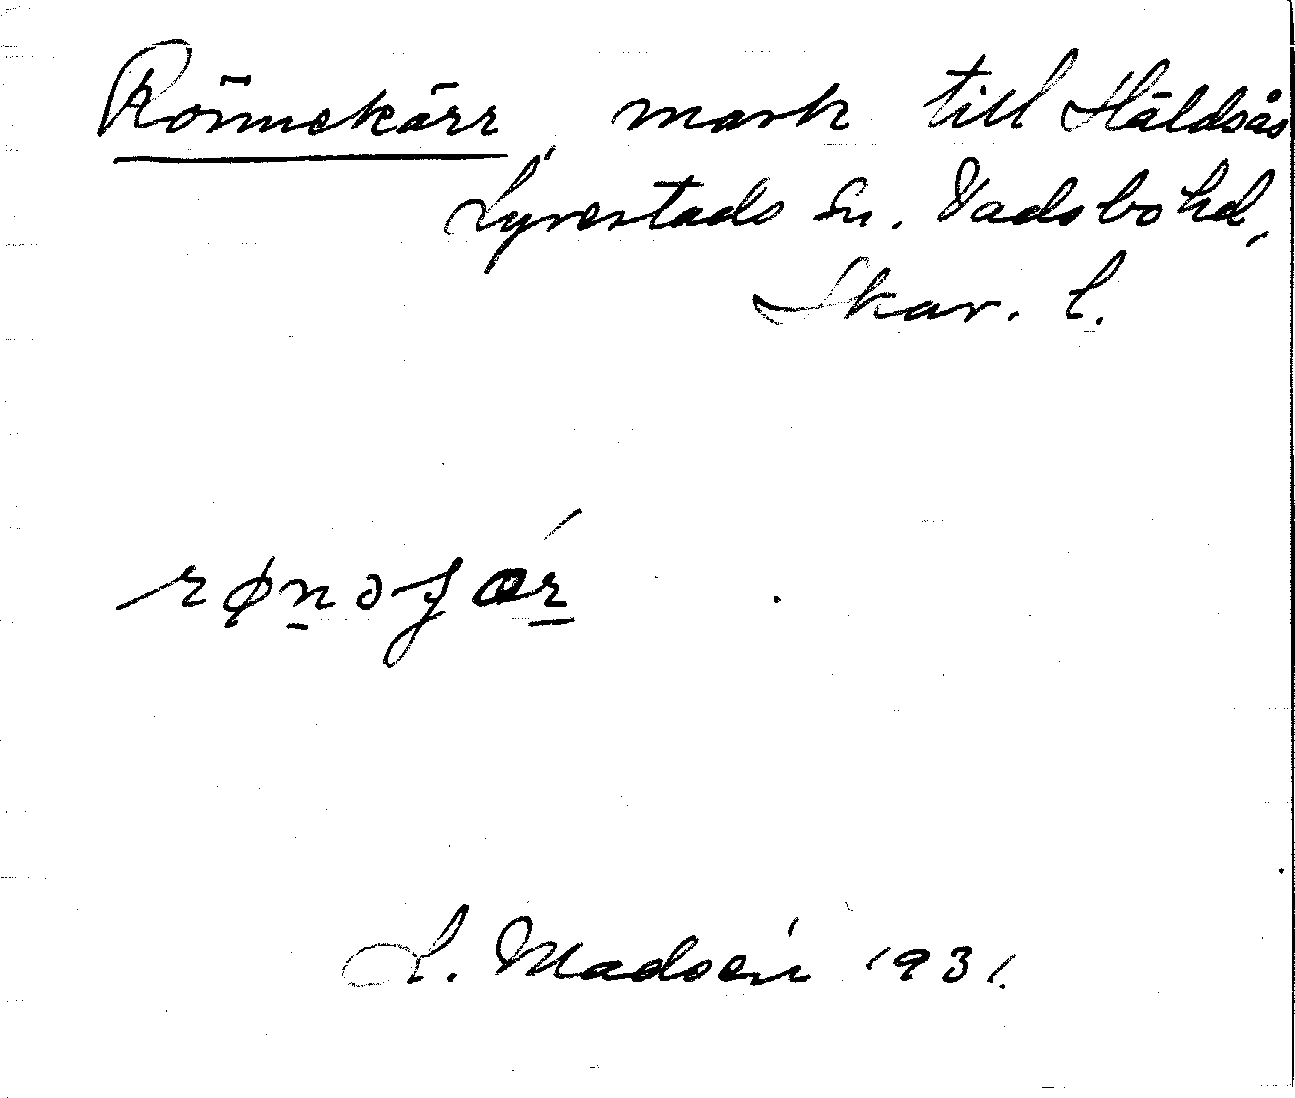 Rönnekärr, mark till Häldsås
Lyrestads sn. Vadsbo hd,
Skar. l.
røn̲əʃær̲´
L. Madsén 1931.